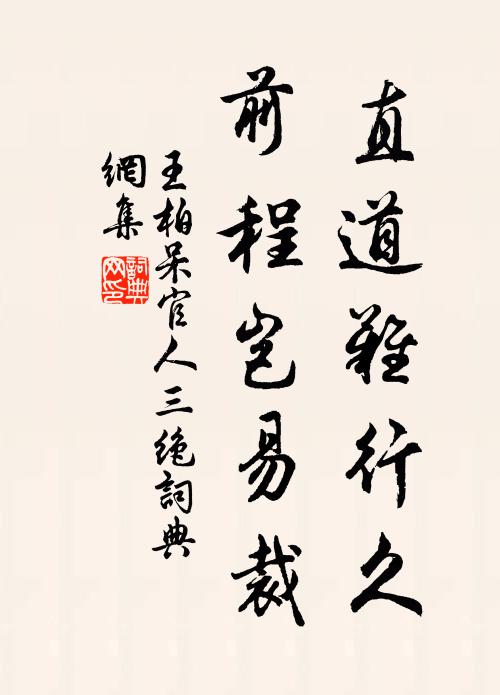 直道難行久
前程豈易裁
王柏呆官人三絶詞典
網集
詞典
网印